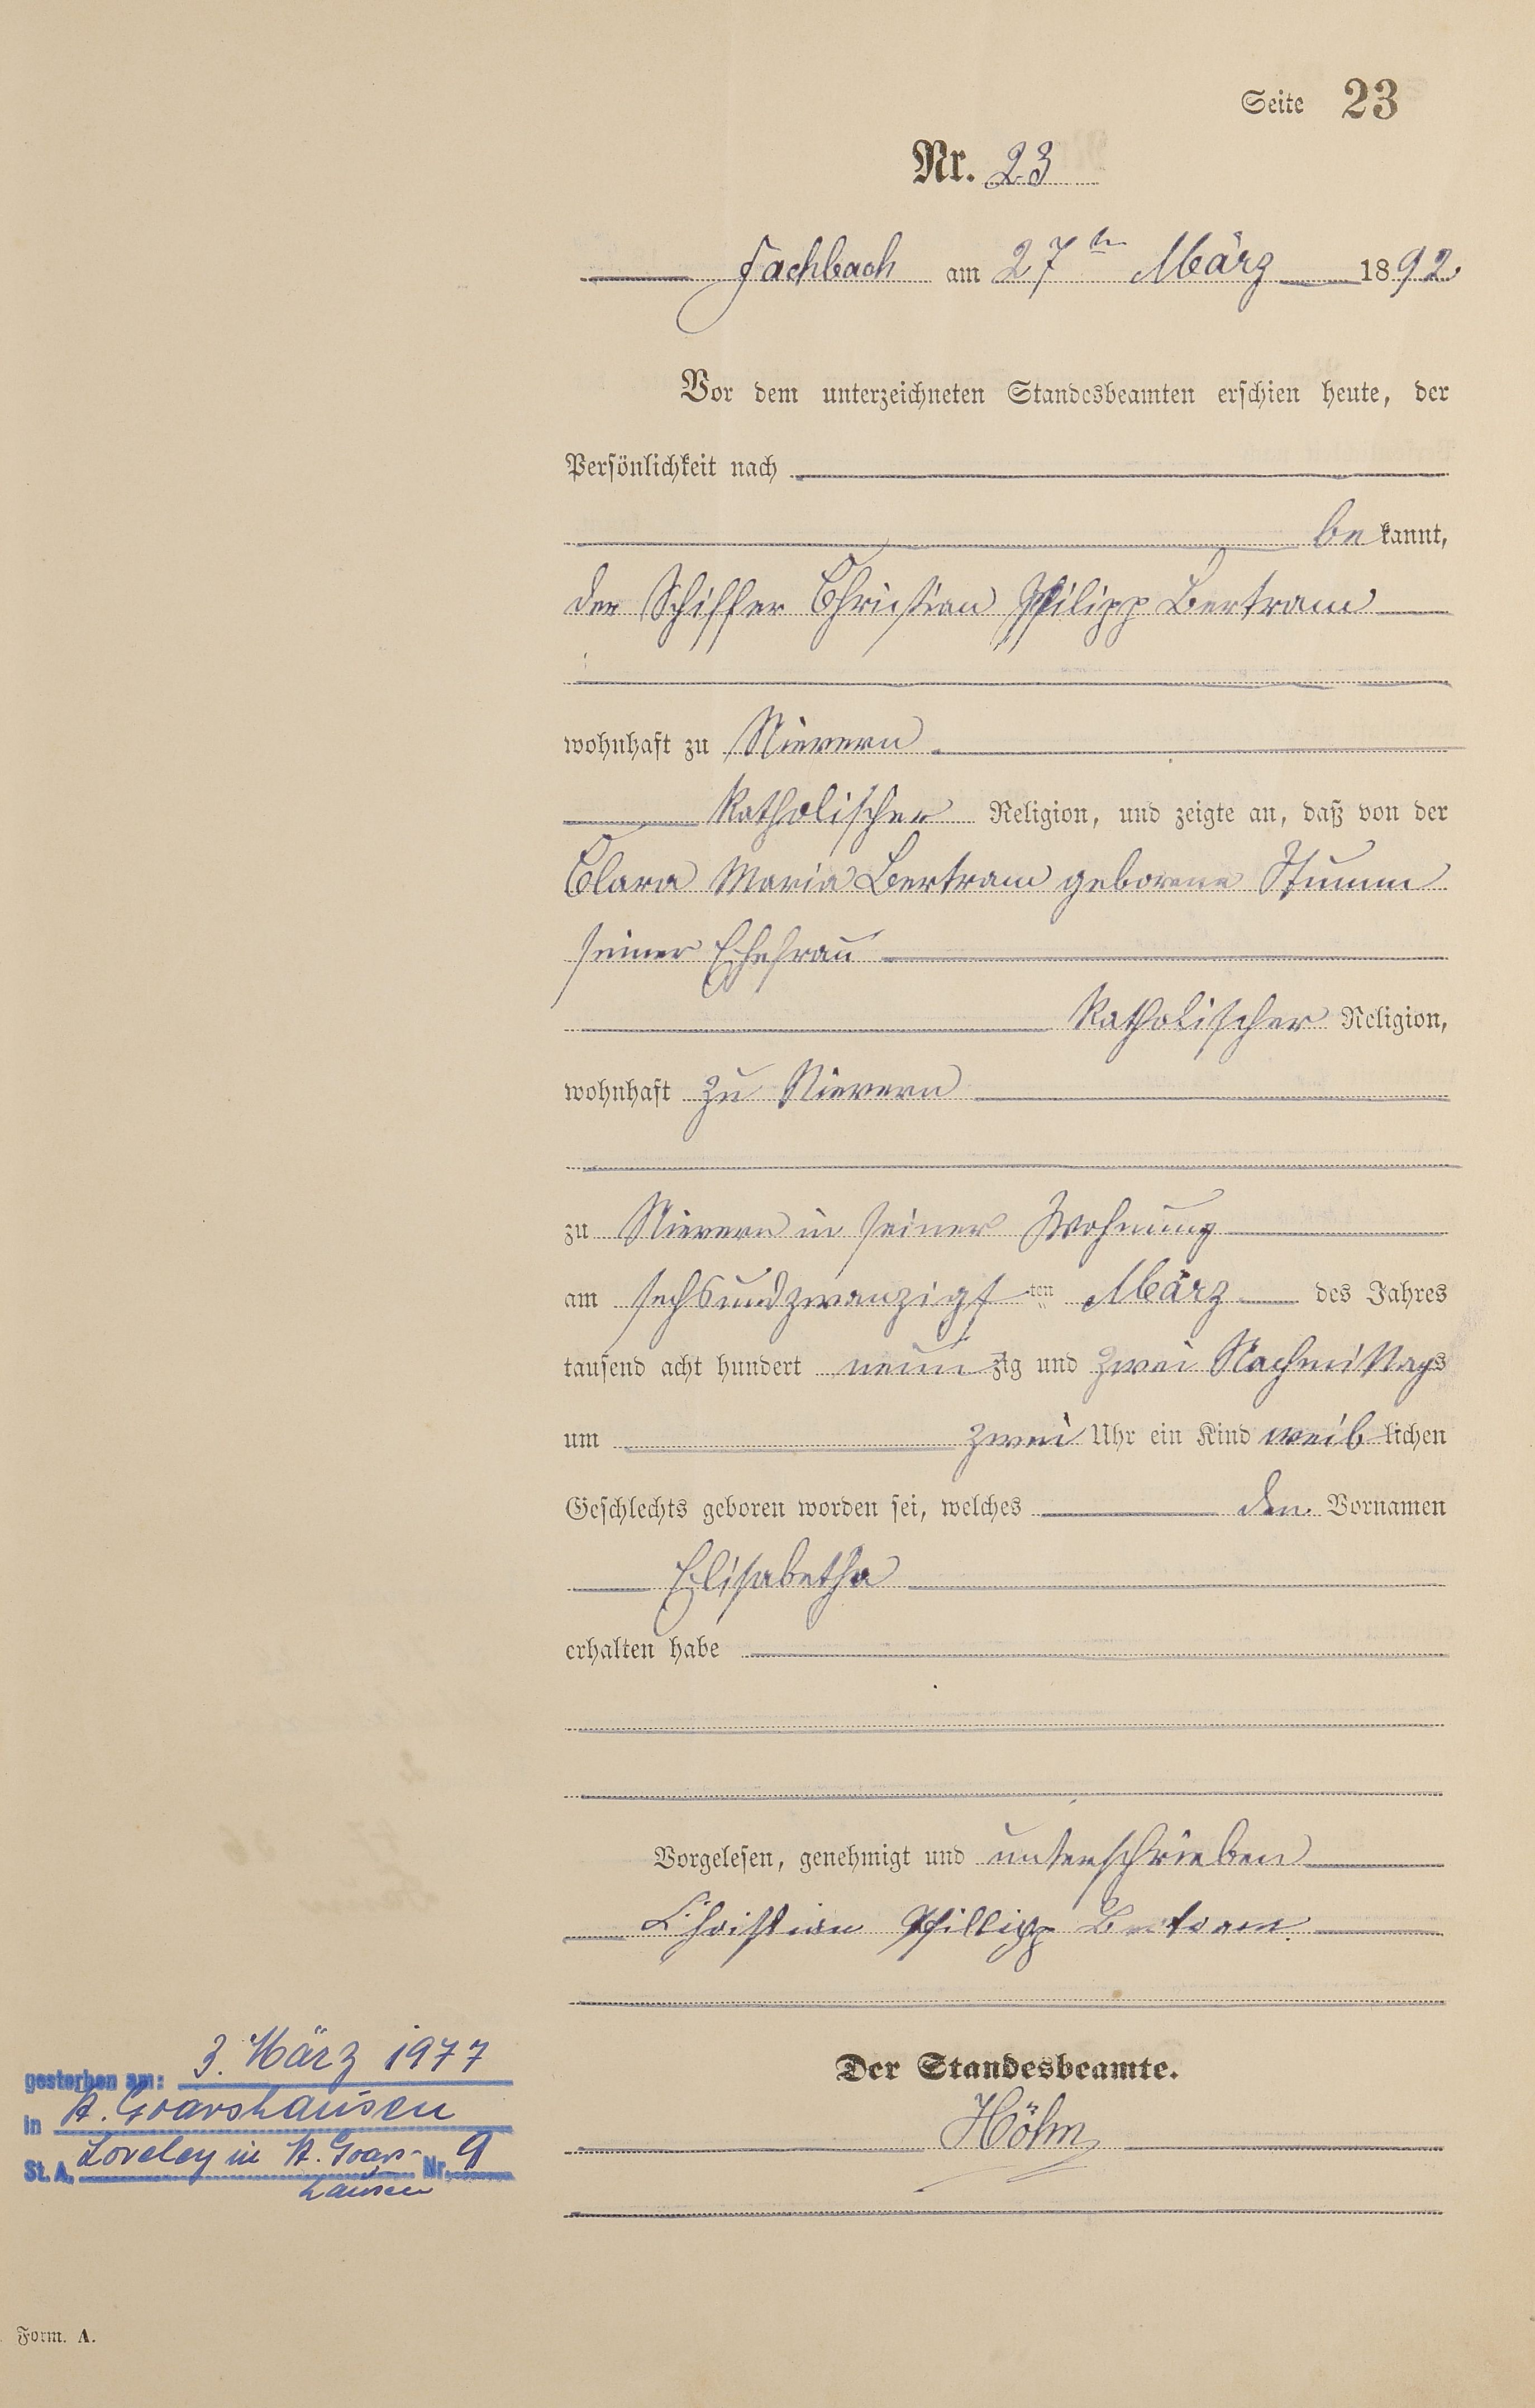 Seite 23
Nr. 23
Fachbach am 27ten März 1892
Vor dem unterzeichneten Standesbeamten erschien heute, der
Persönlichkeit nach
be kannt,
der Schiffer Christian Philipp Bertram
wohnhaft zu Nievern
Katholischer Religion, und zeigte an, daß von der
Clara Maria Bertram geborene Stumm
seiner Ehefrau
Katholischer Religion,
wohnhaft zu Nievern
zu Nievern in seiner Wohnung
am sechsundzwanzigsten März des Jahres
tausend acht hundert neunzig und zwei Nachmittags
um zwei Uhr ein Kind weiblichen
Geschlechts geboren worden sei, welches den Vornamen
Elisabetha
erhalten habe
Vorgelesen, genehmigt und unterschrieben
Christian Phillipp Bertram.
Der Standesbeamte.
Höhn
gestorben am: 3. März 1977
in St. Goarshausen
St. A. Loreley in St. Goars- Nr. 9
hausen
Form. A.